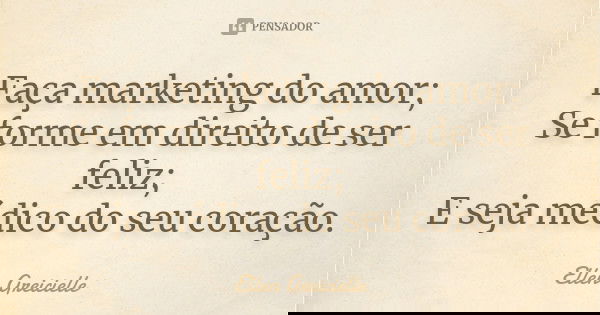 PENSADOR
Faça marketing do amor;
Se forme em direito de ser
feliz;
E seja médico do seu coração.
Ellen Greicielle